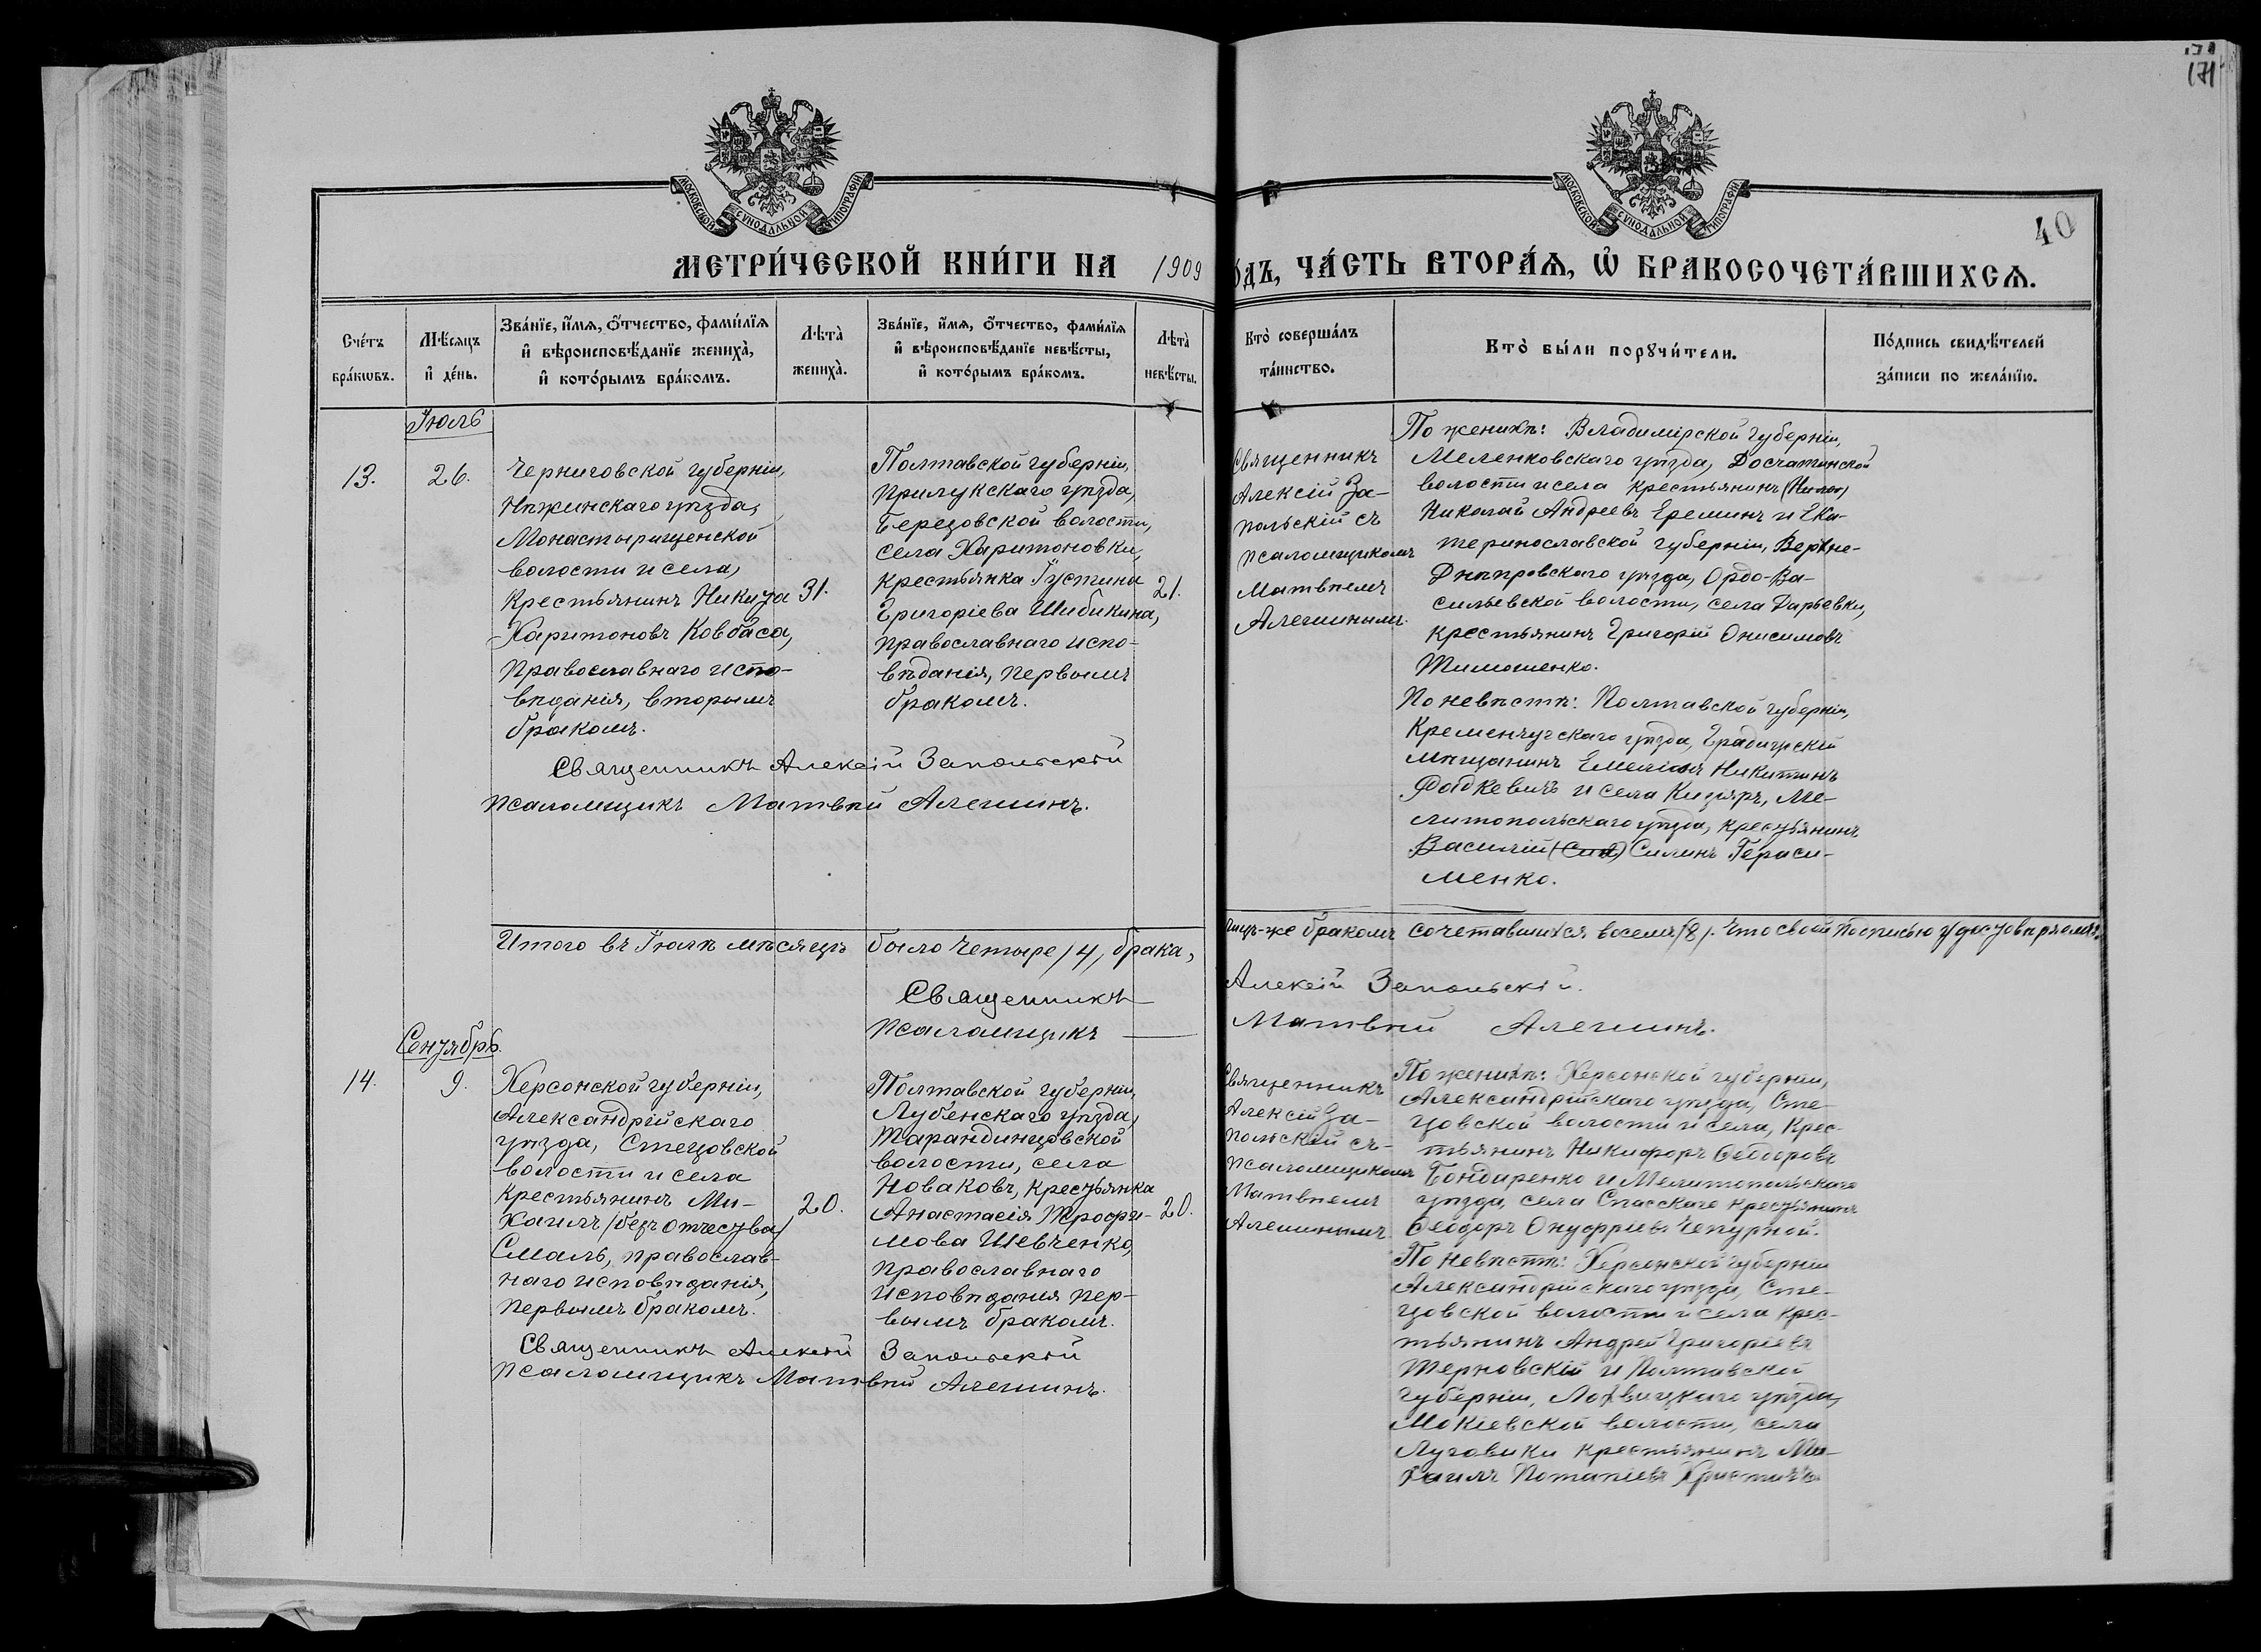 171
МОСКОВСКОЙ СУНОДАЛЬНОЙ ТИПОГРАФІИ
МОСКОВСКОЙ СУНОДАЛЬНОЙ ТИПОГРАФІИ
40
МЕТРИ́ЧЕСКОЙ КНИ́ГИ НА 1909
о́дъ, ЧА́СТЬ ВТОРА́Ѧ, Ѡ҆ БРАКОСОЧЕТА́ВШИХСѦ.
Сче́тъ
бра́кѡвъ.
Мѣ́сяцъ
и҆ де́нь.
Зва́нїе, и҆́мѧ, ѻ҆́тчество, фами́лїѧ
и҆ вѣроисповѣ́данїе жениха̀,
и҆ кото́рымъ бра́комъ.
Лѣта̀
жениха̀.
Зва́нїе, и҆́мѧ, ѻ҆́тчество, фами́лїѧ
и҆ вѣроисповѣ́данїе невѣ́сты,
и҆ кото́рымъ бра́комъ.
Лѣта̀
невѣ́сты.
Кто̀ соверша́лъ
та́инство.
Кто̀ бы́ли порꙋчи́тели.
По́дпись свидѣ́телей
за́писи по жела́нїю.
Іюль
13.
26.
Черниговской губерніи,
Нѣжинскаго уѣзда,
Монастырищенской
волости и села,
Крестьянинъ Никита
Харитоновъ Ковбаса,
Православнаго испо-
вѣданія, вторымъ
бракомъ.
31.
Полтавской губерніи,
Прилукскаго уѣзда,
Березовской волости,
села Харитоновки,
крестьянка Іустина
Григоріева Шибикина,
православнаго испо-
вѣданія, первымъ
бракомъ.
21.
Священникъ
Алексій За-
польскій съ
псаломщикомъ
Матвѣемъ
Алешинымъ.
По женихѣ: Владимірской губерніи,
Меленковскаго уѣзда, Досчатинской
волости и села крестьянинъ
Николай Андреевъ Ереминъ и Ека-
теринославской губерніи, Верхне-
Днѣпровскаго уѣзда, Ордо-Ва-
сильевской волости, села Дарьевки,
крестьянинъ Григорій Онисимовъ
Тимошенко.
По невѣстѣ: Полтавской губерніи,
Кременчугскаго уѣзда, Градижскій
мѣщанинъ Емеліанъ Никитинъ
Фадкевичъ и села Кизяръ, Ме-
литопольскаго уѣзда, крестьянинъ
Василій (Сил) Силинъ Гераси-
менко.
Священникъ Алексій Запольскій
Псаломщикъ Матвѣй Алешинъ.
Итого въ Іюлѣ мѣсяцѣ было четыре /4/ брака,
лицъ-же бракомъ сочетавшихся восемь /8/. Что своей подписью удостовѣряемъ:
Священникъ
Алексій Запольскій.
Псаломщикъ
Матвѣй Алешинъ.
Сентябрь.
14.
9.
Херсонской губерніи,
Александрійскаго
уѣзда, Стецовской
волости и села
крестьянинъ Ми-
хаилъ /безъ отчества/
Смаль, православ-
наго исповѣданія,
первымъ бракомъ.
20.
Полтавской губерніи,
Лубенскаго уѣзда,
Тарандинцовской
волости, села
Новаковъ, крестьянка
Анастасія Трофи-
мова Шевченко,
православнаго
исповѣданія пер-
вымъ бракомъ.
20.
Священникъ
Алексій За-
польскій съ
псаломщикомъ
Матвѣемъ
Алешинымъ.
По женихѣ: Херсонской губерніи,
Александрійскаго уѣзда, Сте-
цовской волости и села, крес-
тьянинъ Никифоръ Ѳедоровъ
Бондаренко и Мелитопольскаго
уѣзда, села Спасскаго крестьянинъ
Ѳеодоръ Онуфріевъ Чепурной.
По невѣстѣ: Херсонской губерніи
Александрійскаго уѣзда, Сте-
цовской волости и села крес-
тьянинъ Андрей Григоріевъ
Терновскій и Полтавской
губерніи, Лохвицкаго уѣзда,
Мокіевской волости, села
Луговики крестьянинъ Ми-
хаилъ Потапіевъ
Священникъ Алексій Запольскій
Псаломщикъ Матвѣй Алешинъ.